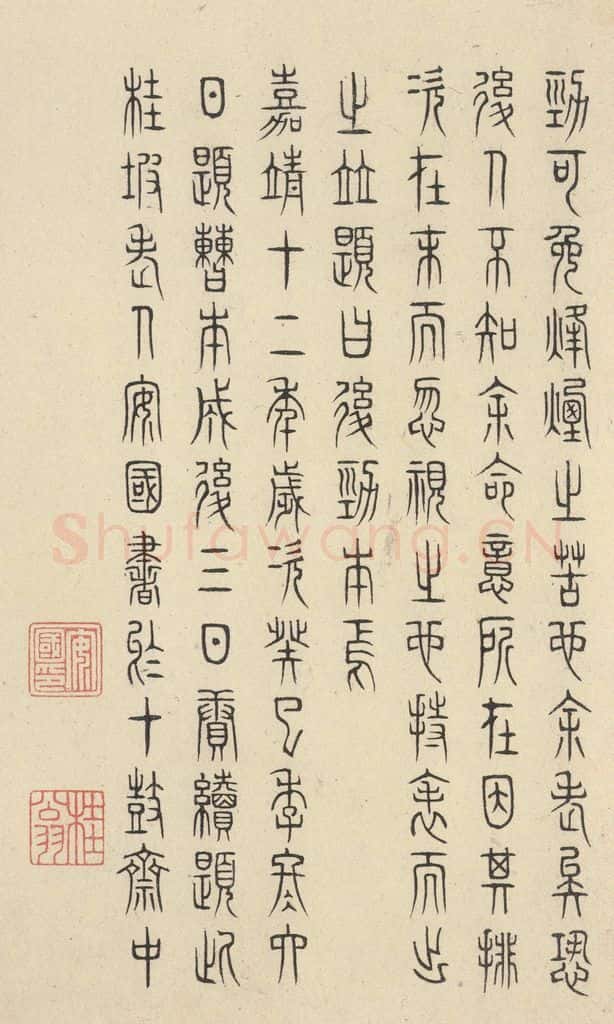 勁可免烽煙之苦也余老矣恐
後人不知余命意所在因其排
次在末而忽視之也特表而出
之並題曰後勁本焉
嘉靖十二年歲次癸巳季冬六
日題舊本成後三日賡續題此
桂坡老人安國書於十鼓齋中
安國印
桂翁
Shufawang.CN